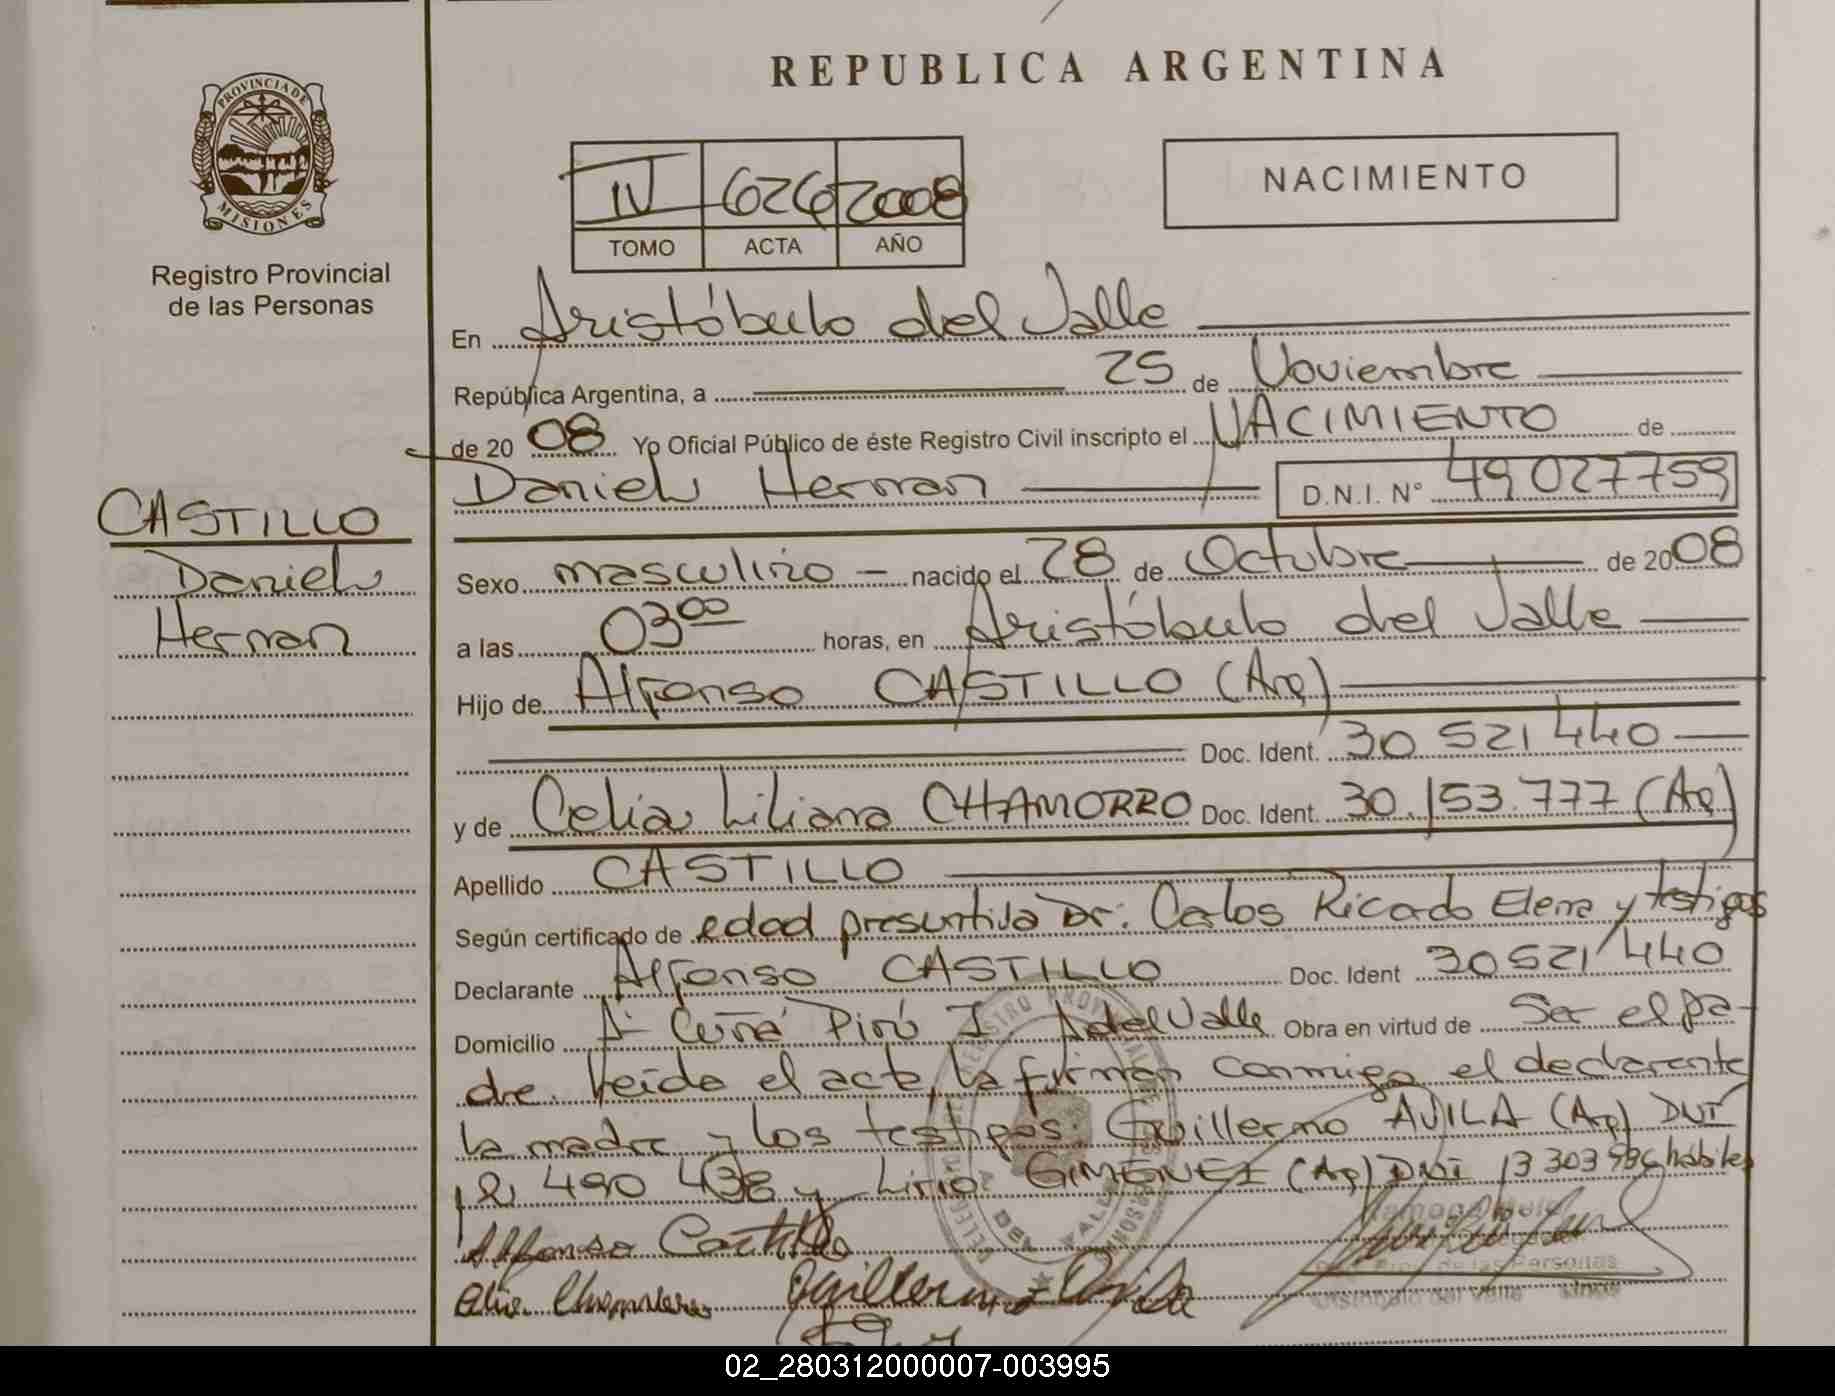 REPUBLICA ARGENTINA
PROVINCIA DE
MISIONES
Registro Provincial
de las Personas
IV 626 2008
TOMO ACTA AÑO
NACIMIENTO
En Aristóbulo del Valle
República Argentina, a 25 de Noviembre
de 2008 Yo Oficial Público de éste Registro Civil inscripto el NACIMIENTO de
Daniel Hernan D.N.I. Nº 49 027759
CASTILLO
Daniel
Hernan
Sexo masculino - nacido el 28 de Octubre de 2008
a las 03 00 horas, en Aristóbulo del Valle
Hijo de Alfonso CASTILLO (Arg)
Doc. Ident. 30 521 440
y de Celia Liliana CHAMORRO Doc. Ident. 30.153.777 (Arg)
Apellido CASTILLO
Según certificado de edad presuntiva Dr: Carlos Ricardo Elena y testigos
Declarante Alfonso CASTILLO Doc. Ident 30521440
Domicilio Aº Cuña Pirú I AdelValle Obra en virtud de Ser el pa-
dre. Leida el acta, la firman conmigo el declarante
la madre y los testigos: Guillermo AVILA (Arg) DNI
490 438 y Lirio GIMENEZ (Arg) DNI 13 303 936 habiles
Alfonso Castillo
Guillermo
de las Personas
Aristóbulo del Valle
02_280312000007-003995